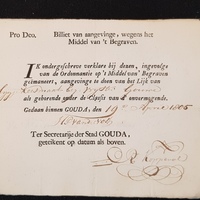 Pro Deo. Billet van aangevinge, wegens het
Middel van 't Begraven.
IK ondergeschreve verklare bij dezen, ingevolge
van de Ordonnantie op 't Middel van Begraven
geëmaneert, aangevinge te doen van het Lijk van
als gehorende onder de Classis van d'onvermogende.
Gedaan binnen GOUDA, den 19 April 1805
Ter Secretarije der Stad GOUDA,
getekent op datum als boven.